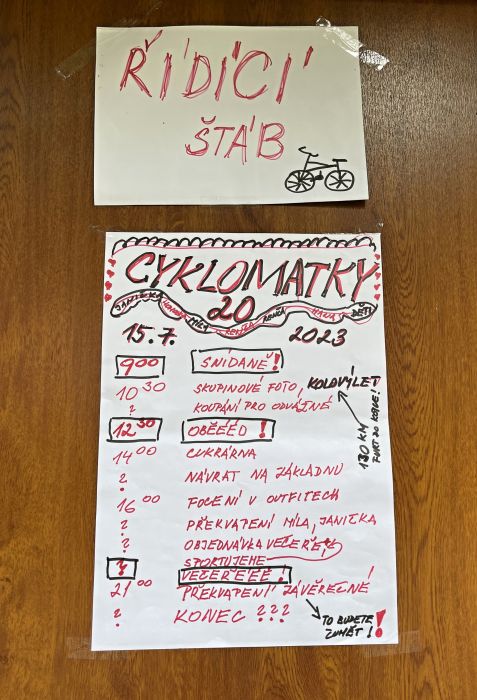 ŘÍDÍCÍ
ŠTÁB
CYKLOMATKY
20
JANIČKA MÍLA LENKA HANA DĚTI
15.7. 2023
9 00 SNÍDANĚ!
10 30 SKUPINOVÉ FOTO, KOLOVÝLET
? KOUPÁNÍ PRO ODVÁŽNÉ
130 KM
FURT DO KOPCE!
12 30 OBĚÉÉD!
14 00 CUKRÁRNA
? NÁVRAT NA ZÁKLADNU
16 00 FOCENÍ V OUTFITECH
? PŘEKVAPENÍ MÍLA, JANIČKA
? OBJEDNÁVKA VEČEŘE,
SPORTUJEME
? VEČEŘEÉÉ!
21 00 PŘEKVAPENÍ ZÁVĚREČNÉ!
? KONEC ???
TO BUDETE
ČUMĚT!!